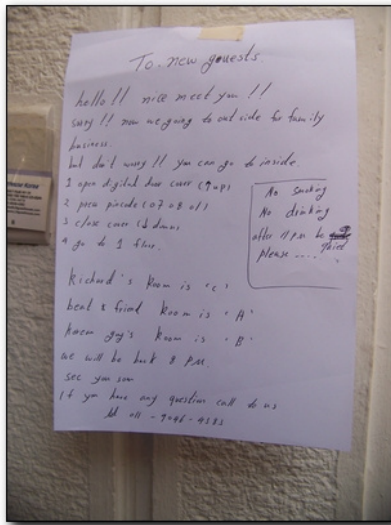 To. new gouests.
hello!! nice meet you!!
sorry!! now we going to out side for family
business.
but don't worry!! you can go to inside.
1 open digital door cover (↑up)
2 press pincode (0708 0/)
3 close cover (↓down)
4 go to 1 floor.
No smoking
No drinking
after 11 P.M. be
please .... quiet
Richard's Room is 'C'
beat & friend Room is 'A'
Korean guy's Room is 'B'
we will be back 8 P.M.
see you soon
if you have any question call to us
011 - 9046 - 4383